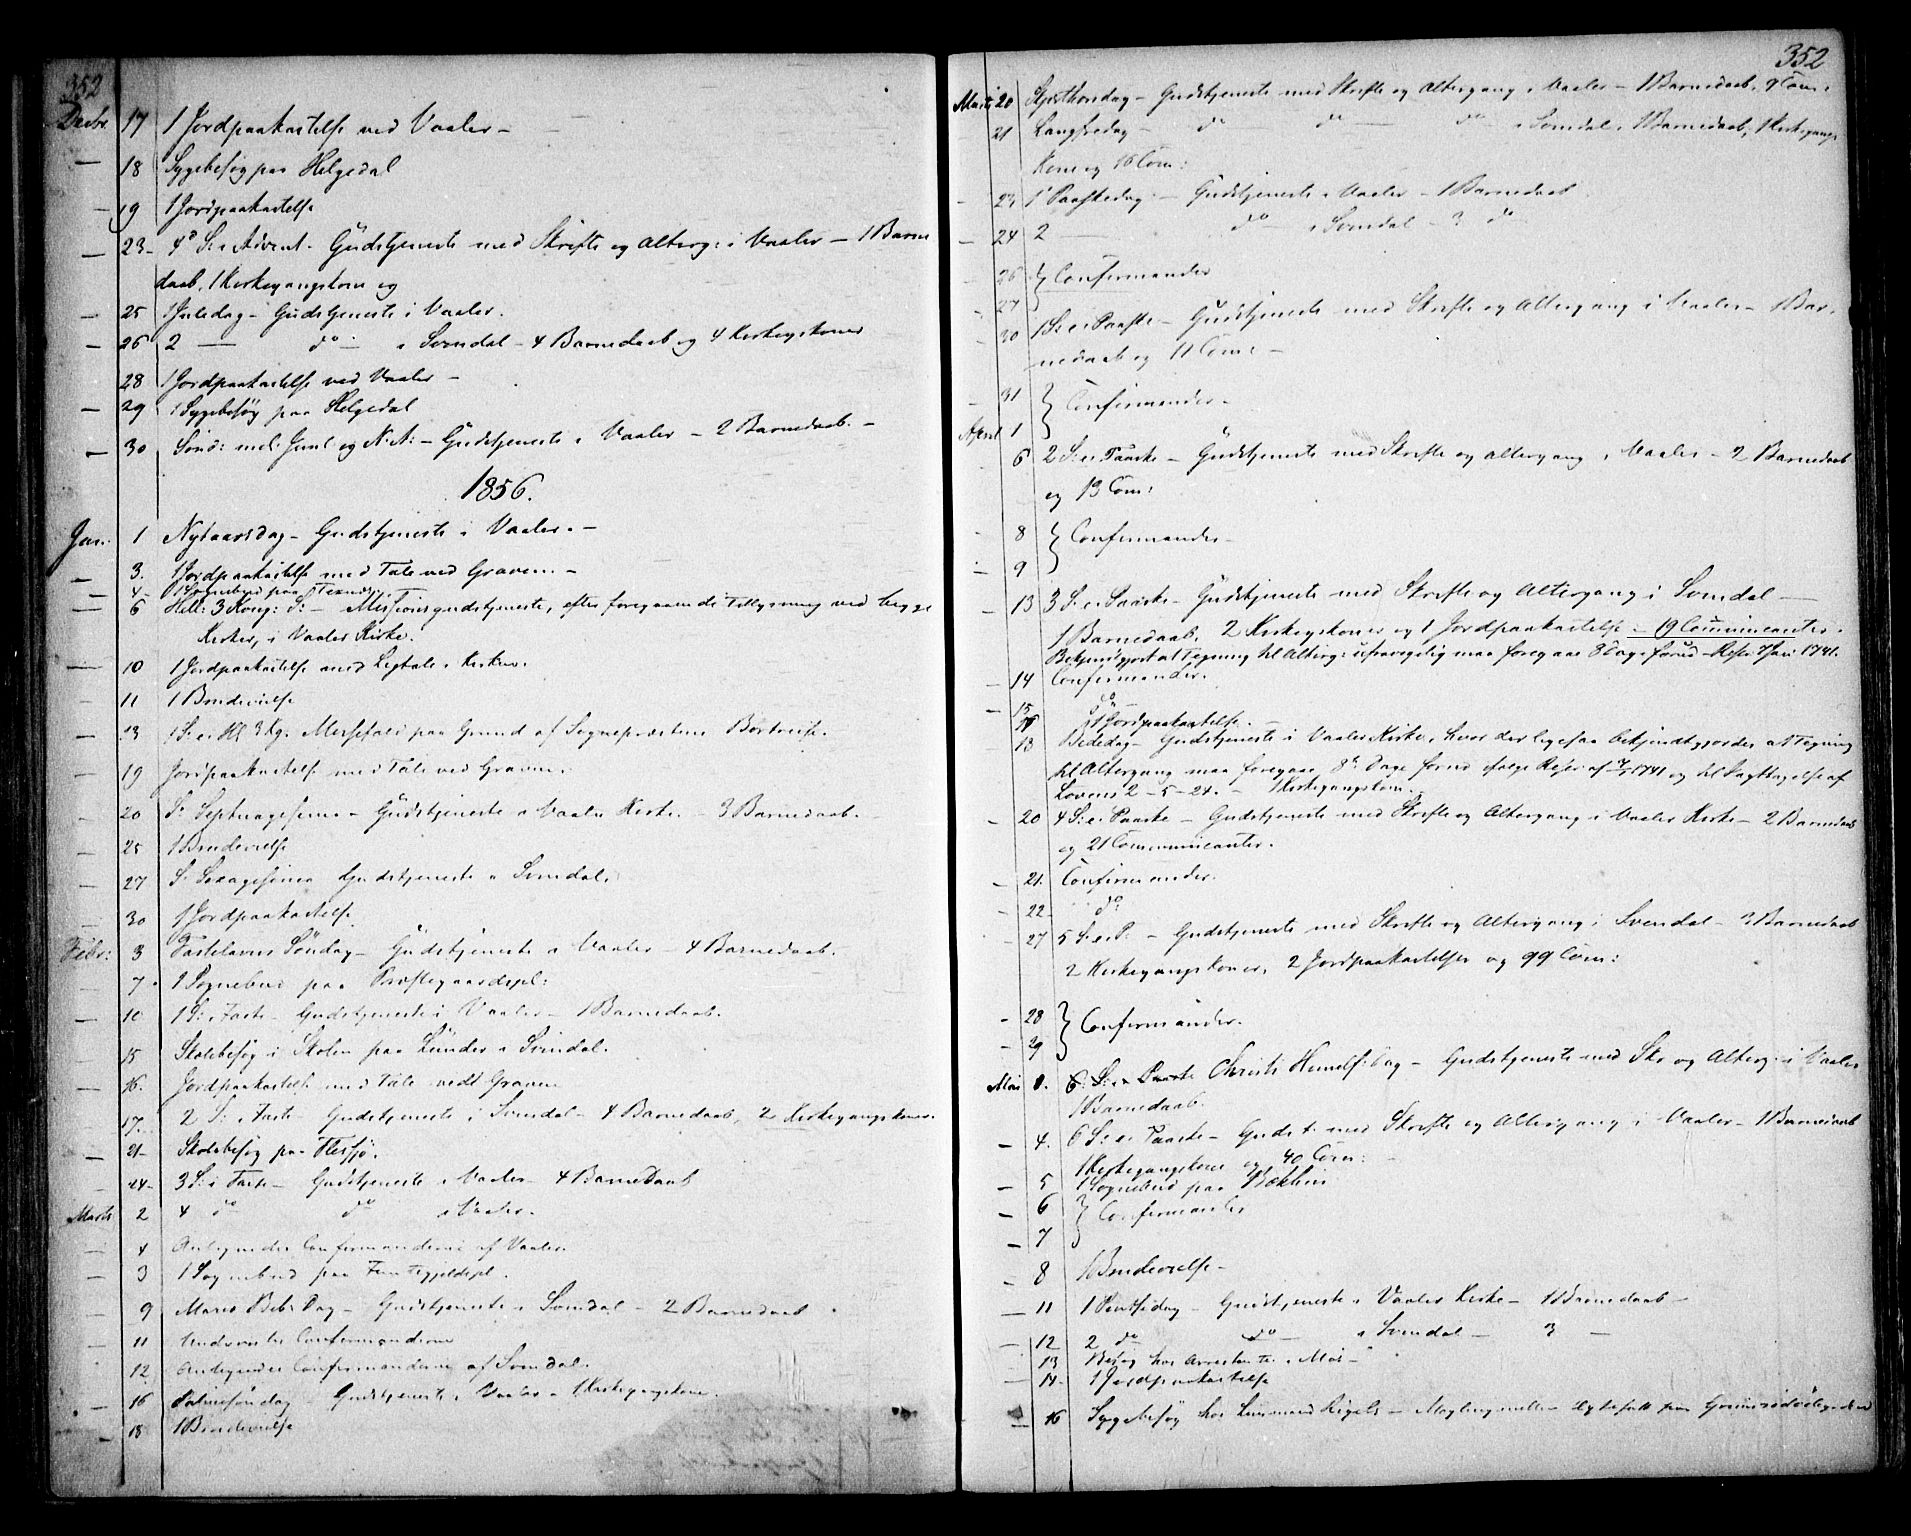 352
Decbr. 17 1 Jordpaakastelse ved Vaaler –
— 18 Sygebesøg paa Helgedal
— 19 1 Jordpaakastelse
— 23 4d S: i Advent. Gudstjeneste med Skrifte og Alterg: i Vaaler — 1 Barne
daab, 1 Kirkegangskone og
— 25 1 Juledag – Gudstjeneste i Vaaler.
— 26 2 — do — i Svindal – 4 Barnedaab og 4 Kirkegskoner
28 1 Jordpaakastelse ved Vaaler –
— 29 1 Sygebesøg paa Helgedal
— 30 Sønd: mel: Juul og N.A: – Gudstjeneste i Vaaler – 2 Barnedaab. –
1856.
Jan. 1 Nytaarsdag – Gudstjeneste i Vaaler. –
— 3. 1 Jordpaakastelse med Tale ved Graven. –
— 4 1 Sognebud paa
— 6 Hell: 3 Kong: D: – Missionsgudstjeneste, efter foregaaende Tillysning ved begge
Kirker, i Vaaler Kirke.
— 10 1 Jordpaakastelse med Ligtale i Kirken.
11 1 Brudevielse
— 13 1 S. e. Hl 3 Kg. Messefald paa Grund af Sognepræstens Bortreise.
— 19 Jordpaakastelse med Tale ved Graven.
— 20 S: Septuagesima – Gudstjeneste i Vaaler Kirke. – 3 Barnedaab.
— 25 1 Brudevielse
— 27 S. Sexagesima Gudstjeneste i Svindal.
— 30 1 Jordpaakastelse
Febr: 3 Fastelavns Søndag – Gudstjeneste i Vaaler – 4 Barnedaab.
— 7. 1 Sognebud paa Præstegaardspl:
— 10 1 S: i Faste – Gudstjeneste i Vaaler – 1 Barnedaab.
— 15 Skolebesøg i Skolen paa Lunder i Svindal.
— 16. Jordpaakastelse med Tale ved Graven
— 17. 2 S: i Faste – Gudstjeneste i Svindal – 4 Barnedaab, 2 Kirkegangskoner.
— 21 Skolebesøg paa Flesjø.
— 24 3 S: i Faste – Gudstjeneste i Vaaler – 4 Barnedaab
Marts 2 4 do do i Vaaler.
— 4 Antegnedes Confirmanderne af Vaaler.
— 3 1 Sognebud paa
— 9 Mariæ Beb: Dag – Gudstjeneste i Svindal – 2 Barnedaab
— 11 Undervistes Confirmanderne
— 12 Antegnedes Confirmanderne af Svindal.
— 16 Palmesøndag – Gudstjeneste i Vaaler – 1 Kirkegangskone.
— 18 1 Brudevielse
352
Marts 20 Skjærthorsdag – Gudstjeneste med Skrifte og Altergang i Vaaler – 1 Barnedaab, 9 Com:
21 Langfredag – do — do — do i Svindal, 1 Barnedaab, 1 Kirkegangs
Kone og 16 Com:
— 23 1 Paaskedag – Gudstjeneste i Vaaler – 1 Barnedaab
— 24 2 — do i Svindal – 3 do
26 } Confirmander
— 27
— 30 1 S: e: Paaske – Gudstjeneste med Skrifte og Altergang i Vaaler – 1 Bar-
nedaab og 11 Com: –
— 31 } Confirmander –
April 1
— 6 2 S: e: Paaske – Gudstjeneste med Skrifte og Altergang i Vaaler – 2 Barnedaab
og 13 Com:
— 8 } Confirmander –
— 9
— 13 3 S: e. Paaske – Gudstjeneste med Skrifte og Altergang i Svindal —
1 Barnedaab, 2 Kirkegskoner og 1 Jordpaakastelse – 19 Communicanter.
Bekjendtgjort at Tegning til Alterg: ufravigelig maa foregaae 8 Dage forud Rescr: 7 Jan: 1741.
— 14 Confirmander.
— 15 do –
16 1 Jordpaakastelse. –
18 Bededag – Gudstjeneste i Vaaler Kirke, hvor der ligesaa bekjendtgjordes at Tegning
til Altergang maa foregaae 8te Dage forud ifølge Rescr af 7/1 1741 og til Iagttagelse af
Lovens 2 – 5 – 24. – 1 Kirkegangskone.
— 20 4 S: e: Paaske – Gudstjeneste med Skrifte og Altergang i Vaaler Kirke – 2 Barnedaab
og 21 Communicanter.
— 21. Confirmander.
— 22 do
— 27 5 S: e: P: – Gudstjeneste med Skrifte og Altergang i Svindal – 3 Barnedaab
2 Kirkegangskoner, 2 Jordpaakastelser og 99 Com:
— 28 } Confirmander.
— 29
Mai 1. 6 S: e: Paaske Christi Himmelf: Dag – Gudstjeneste med Skr og Alterg: i Vaaler
1 Barnedaab.
— 4. 6 S: e: Paaske – Gudst. med Skrifte og Altergang i Vaaler – 1 Barnedaab
1 Kirkegangskone og 40 Com: –
— 5 1 Sognebud paa
— 6 } Confirmander
— 7
— 8 1 Brudevielse –
— 11 1 Pintsedag – Gudstjeneste i Vaaler Kirke – 1 Barnedaab –
— 12 2 do do — i Svindal — 3 –
— 13 Besøg hos Arrestanten i Mos –
— 14 1 Jordpaakastelse
— 16 Sygebesøg hos – Mægling mellem